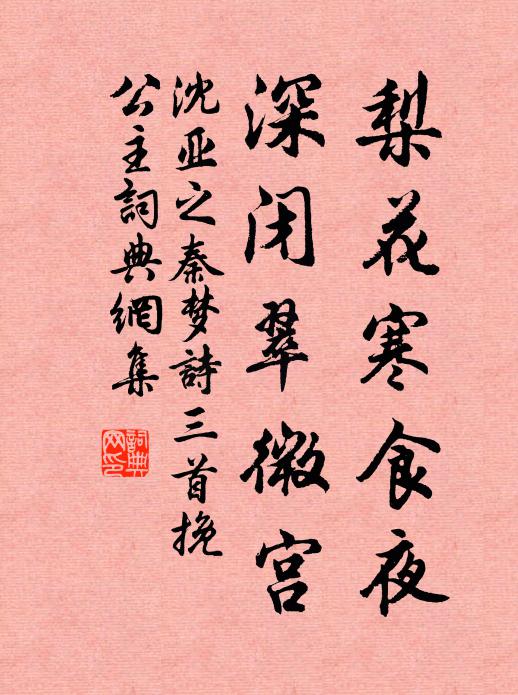 梨花寒食夜
深闭翠微宫
沈亚之秦梦詩三首挽
公主詞典網集
詞典
网印